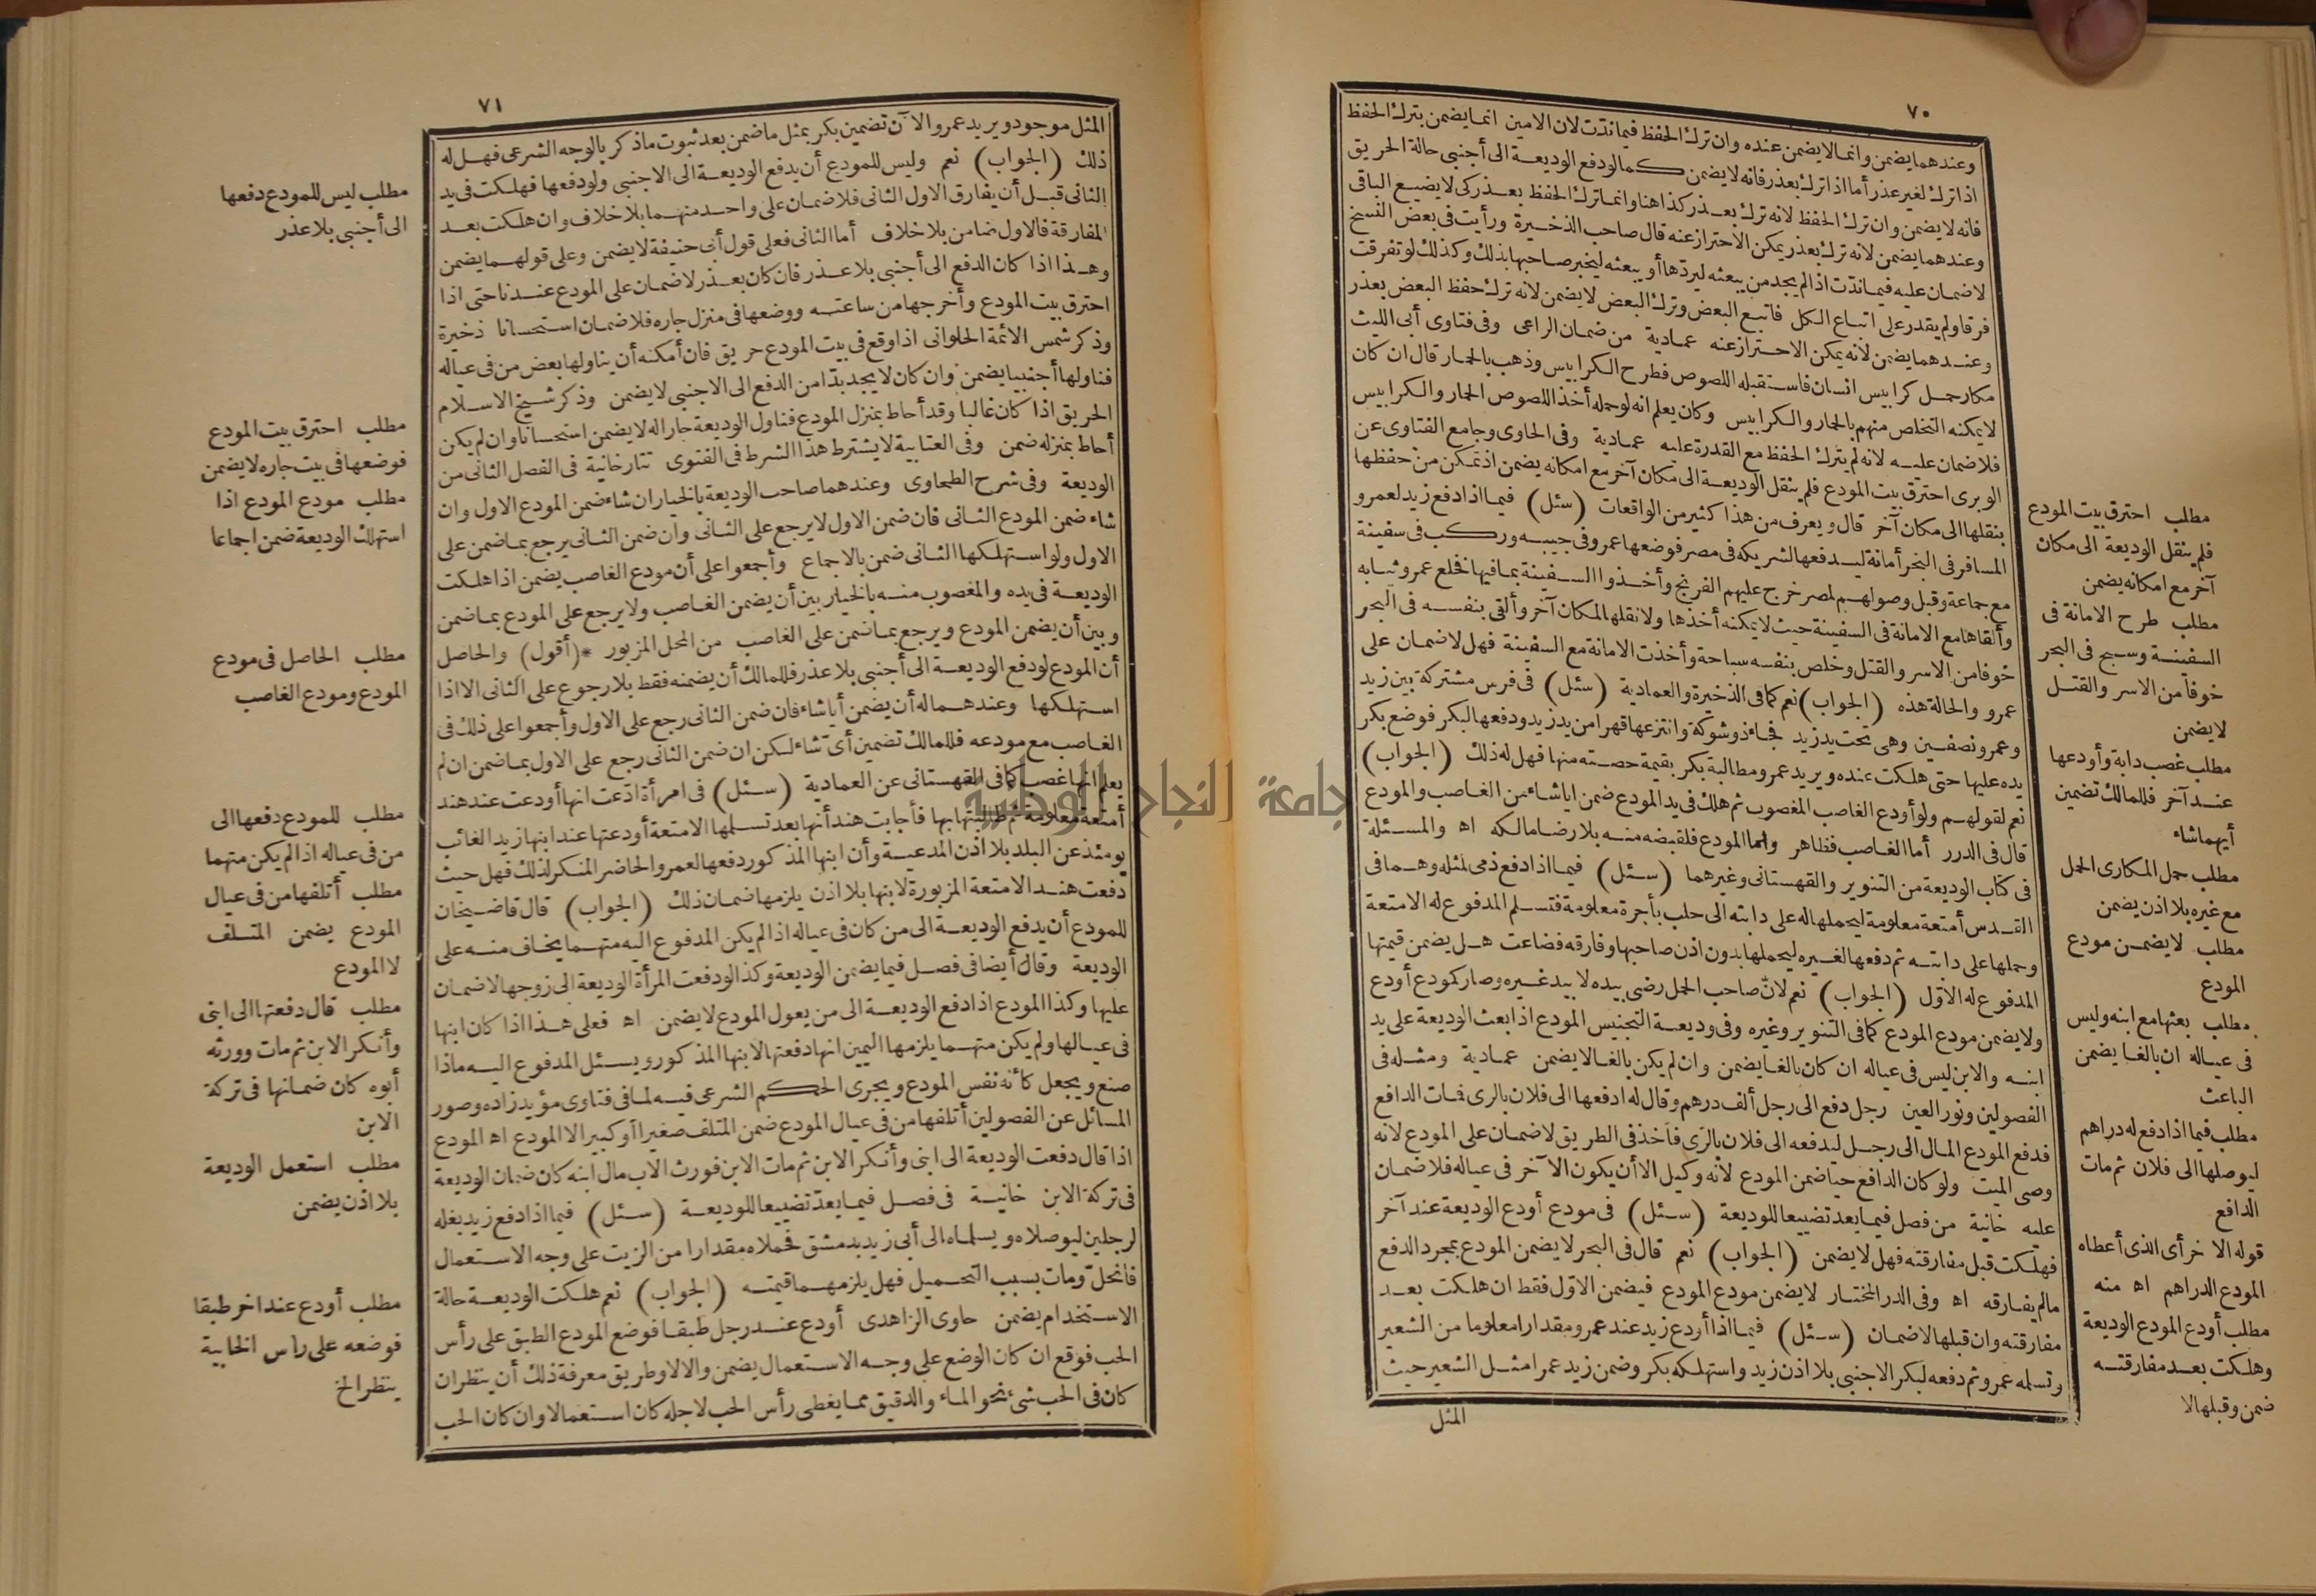 ٧٠
وعندهما يضمن وانما لا يضمن عنده وان ترك الحفظ فيما ندّت لان الامين انما يضمن بترك الحفظ
اذا ترك لغير عذر أما اذا ترك بعذر فانه لا يضمن كما لو دفع الوديعة الى أجنبى حالة الحريق
فانه لا يضمن وان ترك الحفظ لانه ترك بعذر كذا هنا وانما ترك الحفظ بعذر كى لا يضيع الباقى
وعندهما يضمن لانه ترك بعذر يمكن الاحتراز عنه قال صاحب الذخيرة ورأيت فى بعض النسخ
لا ضمان عليه فيما ندّت اذا لم يجد من يبعثه ليردّها أو يبعثه ليخبر صاحبها بذلك وكذلك لو تفرقت
فرقا ولم يقدر على اتباع الكل فاتبع البعض وترك البعض لا يضمن لانه ترك حفظ البعض بعذر
وعندهما يضمن لانه يمكن الاحتراز عنه عمادية من ضمان الراعى وفى فتاوى أبى الليث
مكار حمل كرابيس انسان فاستقبله اللصوص فطرح الكرابيس وذهب بالحمار قال ان كان
لا يمكنه التخلص منهم بالحمار والكرابيس وكان يعلم انه لو حمله أخذ اللصوص الحمار والكرابيس
فلا ضمان عليه لانه لم يترك الحفظ مع القدرة عليه عمادية وفى الحاوى وجامع الفتاوى عن
الوبرى احترق بيت المودع فلم ينقل الوديعة الى مكان آخر مع امكانه يضمن اذ تمكن من حفظها
بنقلها الى مكان آخر قال ويعرف من هذا كثير من الواقعات (سئل) فيما اذا دفع زيد لعمرو
المسافر فى البحر أمانة ليدفعها لشريكه فى مصر فوضعها عمرو فى جيبه وركب فى سفينة
مع جماعة وقبل وصولهم لمصر خرج عليهم الفرنج وأخذوا السفينة بما فيها فخلع عمرو ثيابه
وألقاها مع الامانة فى السفينة حيث لا يمكنه أخذها ولا نقلها لمكان آخر وألقى بنفسه فى البحر
خوفا من الاسر والقتل وخلص بنفسه سباحة وأخذت الامانة مع السفينة فهل لا ضمان على
عمرو والحالة هذه (الجواب) نعم كما فى الذخيرة والعمادية (سئل) فى فرس مشتركة بين زيد
وعمرو نصفين وهى تحت يد زيد فجاء ذو شوكة وانتزعها قهرا من يد زيد ودفعها لبكر فوضع بكر
يده عليها حتى هلكت عنده ويريد عمرو مطالبة بكر بقيمة حصته منها فهل له ذلك (الجواب)
نعم لقولهم ولو أودع الغاصب المغصوب ثم هلك فى يد المودع ضمن ايا شاء من الغاصب والمودع
قال فى الدرر أما الغاصب فظاهر وأما المودع فلقبضه منه بلا رضا مالكه اه والمسئلة
فى كتاب الوديعة من التنوير والقهستانى وغيرهما (سئل) فيما اذا دفع ذمى لمثله وهما فى
القدس أمتعة معلومة ليحملها له على دابته الى حلب بأجرة معلومة فتسلم المدفوع له الامتعة
وحملها على دابته ثم دفعها لغيره ليحملها بدون اذن صاحبها وفارقه فضاعت هل يضمن قيمتها
المدفوع له الاوّل (الجواب) نعم لانّ صاحب الحمل رضى بيده لا بيد غيره وصار كمودع أودع
ولا يضمن مودع المودع كما فى التنوير وغيره وفى وديعة التجنيس المودع اذا بعث الوديعة على يد
ابنه والابن ليس فى عياله ان كان بالغا يضمن وان لم يكن بالغا لا يضمن عمادية ومثله فى
الفصولين ونور العين رجل دفع الى رجل ألف درهم وقال له ادفعها الى فلان بالرى فمات الدافع
فدفع المودع المال الى رجل ليدفعه الى فلان بالرى فأخذ فى الطريق لا ضمان على المودع لانه
وصى الميت ولو كان الدافع حيا ضمن المودع لانه وكيل الا أن يكون الآخر فى عياله فلا ضمان
عليه خانية من فصل فيما يعد تضييعا للوديعة (سئل) فى مودع أودع الوديعة عند آخر
فهلكت قبل مفارقته فهل لا يضمن (الجواب) نعم قال فى البحر لا يضمن المودع بمجرد الدفع
مالم يفارقه اه وفى الدر المختار لا يضمن مودع المودع فيضمن الاوّل فقط ان هلكت بعد
مفارقته وان قبلها لا ضمان (سئل) فيما اذا أودع زيد عند عمرو مقدارا معلوما من الشعير
وتسلمه عمرو ثم دفعه لبكر الاجنبى بلا اذن زيد واستهلكه بكر وضمن زيد عمرا مثل الشعير حيث
المثل
مطلب احترق بيت المودع
فلم ينقل الوديعة الى مكان
آخر مع امكانه يضمن
مطلب طرح الامانة فى
السفينة وسبح فى البحر
خوفا من الاسر والقتل
لا يضمن
مطلب غصب دابة وأودعها
عند آخر فللمالك تضمين
أيهما شاء
مطلب حمل المكارى الحمل
مع غيره بلا اذن يضمن
مطلب لا يضمن مودع
المودع
مطلب بعثها مع ابنه وليس
فى عياله ان بالغا يضمن
الباعث
مطلب فيما اذا دفع له دراهم
ليوصلها الى فلان ثم مات
الدافع
قوله الآخر أى الذى أعطاه
المودع الدراهم اه منه
مطلب أودع المودع الوديعة
وهلكت بعد مفارقته
ضمن وقبلها لا
٧١
المثل موجود ويريد عمرو الآن تضمين بكر بمثل ما ضمن بعد ثبوت ما ذكر بالوجه الشرعى فهل له
ذلك (الجواب) نعم وليس للمودع أن يدفع الوديعة الى الاجنبى ولو دفعها فهلكت فى يد
الثانى قبل أن يفارق الاول الثانى فلا ضمان على واحد منهما بلا خلاف وان هلكت بعد
المفارقة فالاول ضامن بلا خلاف أما الثانى فعلى قول أبى حنيفة لا يضمن وعلى قولهما يضمن
وهذا اذا كان الدفع الى أجنبى بلا عذر فان كان بعذر لا ضمان على المودع عندنا حتى اذا
احترق بيت المودع وأخرجها من ساعته ووضعها فى منزل جاره فلا ضمان استحسانا ذخيرة
وذكر شمس الائمة الحلوانى اذا وقع فى بيت المودع حريق فان أمكنه أن يناولها بعض من فى عياله
فناولها أجنبيا يضمن وان كان لا يجد بدّا من الدفع الى الاجنبى لا يضمن وذكر شيخ الاسلام
الحريق اذا كان غالبا وقد أحاط بمنزل المودع فناول الوديعة جارا له لا يضمن استحسانا وان لم يكن
أحاط بمنزله ضمن وفى العتابية لا يشترط هذا الشرط فى الفتوى تتارخانية فى الفصل الثانى من
الوديعة وفى شرح الطحاوى وعندهما صاحب الوديعة بالخيار ان شاء ضمن المودع الاول وان
شاء ضمن المودع الثانى فان ضمن الاول لا يرجع على الثانى وان ضمن الثانى يرجع بما ضمن على
الاول ولو استهلكها الثانى ضمن بالاجماع وأجمعوا على أن مودع الغاصب يضمن اذا هلكت
الوديعة فى يده والمغصوب منه بالخيار بين أن يضمن الغاصب ولا يرجع على المودع بما ضمن
وبين أن يضمن المودع ويرجع بما ضمن على الغاصب من المحل المزبور *(أقول) والحاصل
أن المودع لو دفع الوديعة الى أجنبى بلا عذر فللمالك أن يضمنه فقط بلا رجوع على الثانى الا اذا
استهلكها وعندهما له أن يضمن أيا شاء فان ضمن الثانى رجع على الاول وأجمعوا على ذلك فى
الغاصب مع مودعه فللمالك تضمين أىّ شاء لكن ان ضمن الثانى رجع على الاول بما ضمن ان لم
يعلم انها غصب كما فى القهستانى عن العمادية (سئل) فى امرأة ادّعت انها أودعت عند هند
أمتعة معلومة ثم طالبتها بها فأجابت هند أنها بعد تسلمها الامتعة أودعتها عند ابنها زيد الغائب
يومئذ عن البلد بلا اذن المدعية وأن ابنها المذكور دفعها لعمرو الحاضر المنكر لذلك فهل حيث
دفعت هند الامتعة المزبورة لابنها بلا اذن يلزمها ضمان ذلك (الجواب) قال قاضيخان
للمودع أن يدفع الوديعة الى من كان فى عياله اذا لم يكن المدفوع اليه متهما يخاف منه على
الوديعة وقال أيضا فى فصل فيما يضمن الوديعة وكذا لو دفعت المرأة الوديعة الى زوجها لا ضمان
عليها وكذا المودع اذا دفع الوديعة الى من يعول المودع لا يضمن اه فعلى هذا اذا كان ابنها
فى عيالها ولم يكن متهما يلزمها اليمين انها دفعتها لابنها المذكور ويسئل المدفوع اليه ماذا
صنع ويجعل كأنه نفس المودع ويجرى الحكم الشرعى فيه لما فى فتاوى مؤيد زاده وصور
المسائل عن الفصولين أتلفها من فى عيال المودع ضمن المتلف صغيرا أو كبيرا لا المودع اه المودع
اذا قال دفعت الوديعة الى ابنى وأنكر الابن ثم مات الابن فورث الاب مال ابنه كان ضمان الوديعة
فى تركة الابن خانية فى فصل فيما يعدّ تضييعا للوديعة (سئل) فيما اذا دفع زيد بغله
لرجلين ليوصلاه ويسلماه الى أبى زيد بدمشق فحملاه مقدارا من الزيت على وجه الاستعمال
فانحلّ ومات بسبب التحميل فهل يلزمهما قيمته (الجواب) نعم هلكت الوديعة حالة
الاستخدام يضمن حاوى الزاهدى أودع عند رجل طبقا فوضع المودع الطبق على رأس
الحب فوقع ان كان الوضع على وجه الاستعمال يضمن والا لا وطريق معرفة ذلك أن ينظر ان
كان فى الحب شئ نحو الماء والدقيق مما يغطى رأس الحب لاجله كان استعمالا وان كان الحب
مطلب ليس للمودع دفعها
الى أجنبى بلا عذر
مطلب احترق بيت المودع
فوضعها فى بيت جاره لا يضمن
مطلب مودع المودع اذا
استهلك الوديعة ضمن اجماعا
مطلب الحاصل فى مودع
المودع ومودع الغاصب
مطلب للمودع دفعها الى
من فى عياله اذا لم يكن متهما
مطلب أتلفها من فى عيال
المودع يضمن المتلف
لا المودع
مطلب قال دفعتها الى ابنى
وأنكر الابن ثم مات وورثه
أبوه كان ضمانها فى تركة
الابن
مطلب استعمل الوديعة
بلا اذن يضمن
مطلب أودع عند اخر طبقا
فوضعه على راس الخابية
ينظر الخ
جامعة النجاح الوطنية